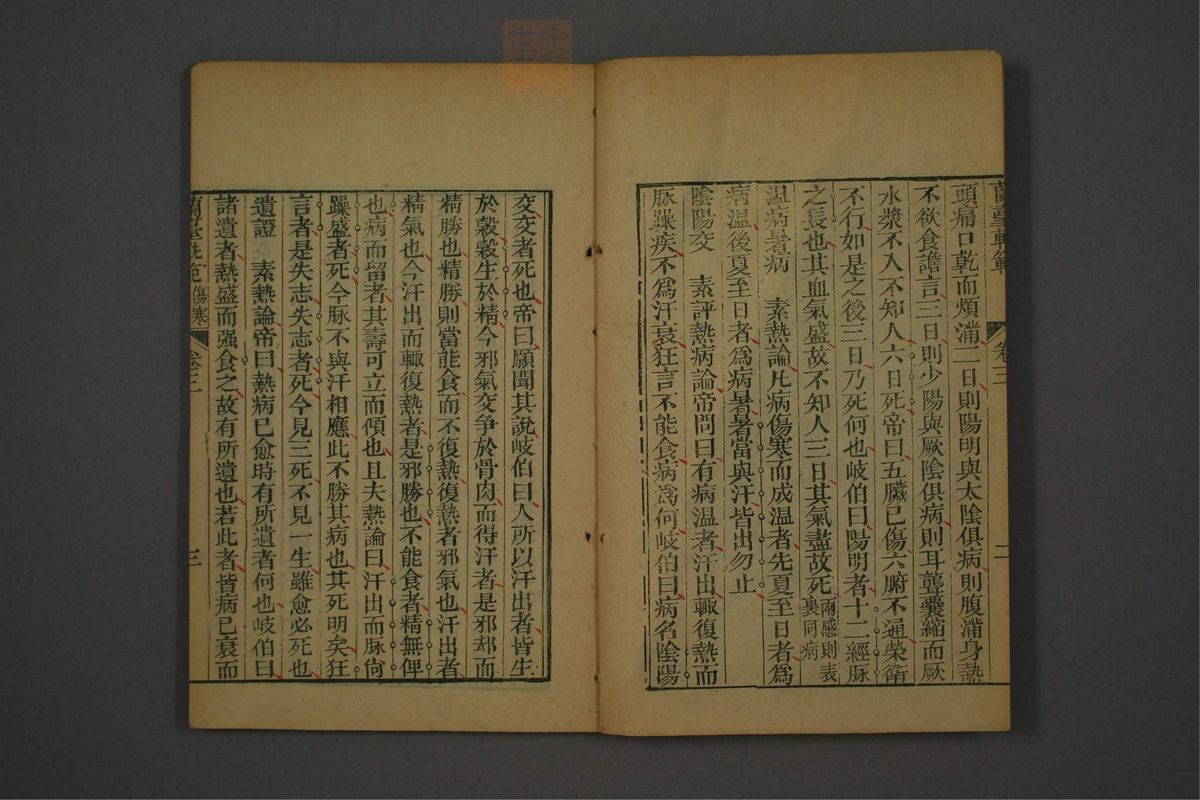 蘭臺軌範 卷三 二
頭痛口乾而煩滿二日則陽明與太陰俱病則腹滿身熱
不欲食譫言三日則少陽與厥陰俱病則耳聾囊縮而厥
水漿不入不知人六日死帝曰五臟已傷六腑不通榮衛
不行如是之後三日乃死何也岐伯曰陽明者十二經脉
之長也其血氣盛故不知人三日其氣盡故死兩感則表裏同病
温病暑病 素熱論凡病傷寒而成温者先夏至日者爲
病温後夏至日者爲病暑暑當與汗皆出勿止
陰陽交 素評熱病論帝問曰有病温者汗出輙復熱而
脉躁疾不爲汗衰狂言不能食病爲何岐伯曰病名陰陽
交交者死也帝曰願聞其說岐伯曰人所以汗出者皆生
於穀穀生於精今邪氣交争於骨肉而得汗者是邪却而
精勝也精勝則當能食而不復熱復熱者邪氣也汗出者
精氣也今汗出而輙復熱者是邪勝也不能食者精無俾
也病而留者其壽可立而傾也且夫熱論曰汗出而脉尙
躁盛者死今脉不與汗相應此不勝其病也其死明矣狂
言者是失志失志者死今見三死不見一生雖愈必死也
遺證 素熱論帝曰熱病已愈時有所遺者何也岐伯曰
諸遺者熱盛而强食之故有所遺也若此者皆病已衰而
蘭臺軌范 傷寒 卷三 三